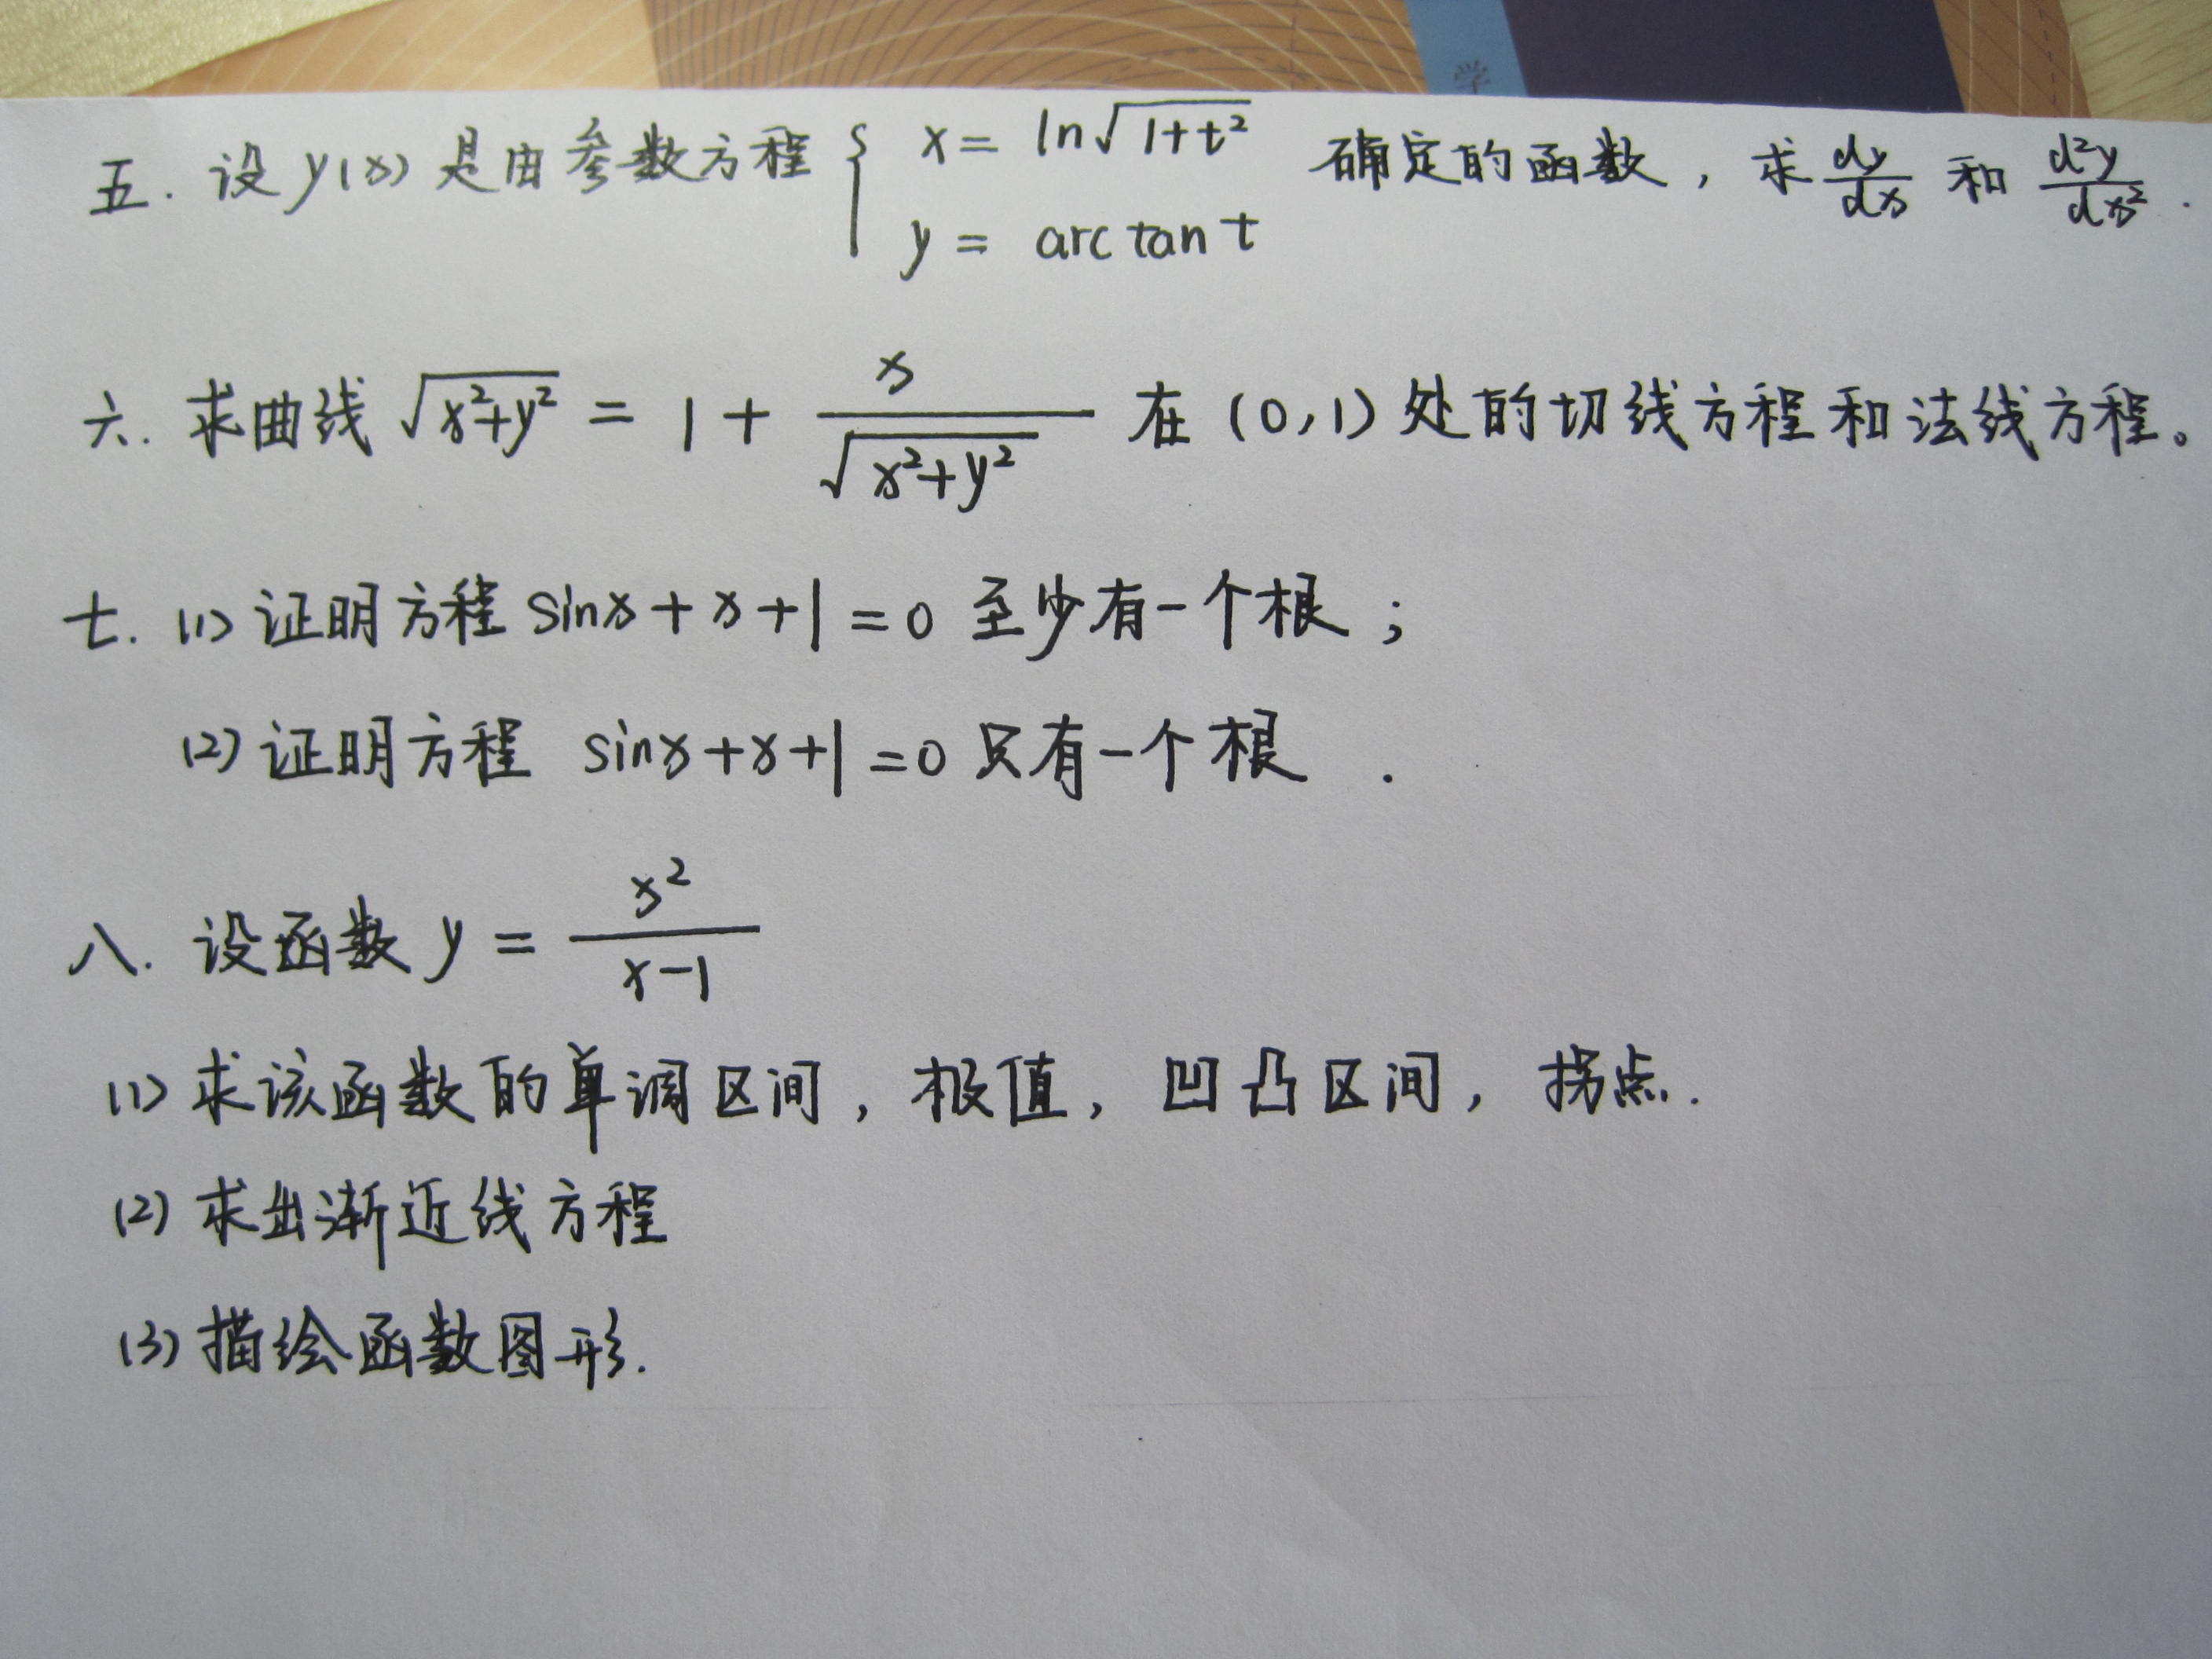 学
五. 设y(x)是由参数方程 { x = ln√(1+t²) 确定的函数, 求 dy/dx 和 d²y/dx².
y = arctan t
六. 求曲线 √(x²+y²) = 1 + x/√(x²+y²) 在(0,1)处的切线方程和法线方程。
七. (1) 证明方程 sinx + x + 1 = 0 至少有一个根;
(2) 证明方程 sinx + x + 1 = 0 只有一个根.
八. 设函数 y = x²/(x-1)
(1) 求该函数的单调区间, 极值, 凹凸区间, 拐点.
(2) 求出渐近线方程
(3) 描绘函数图形.